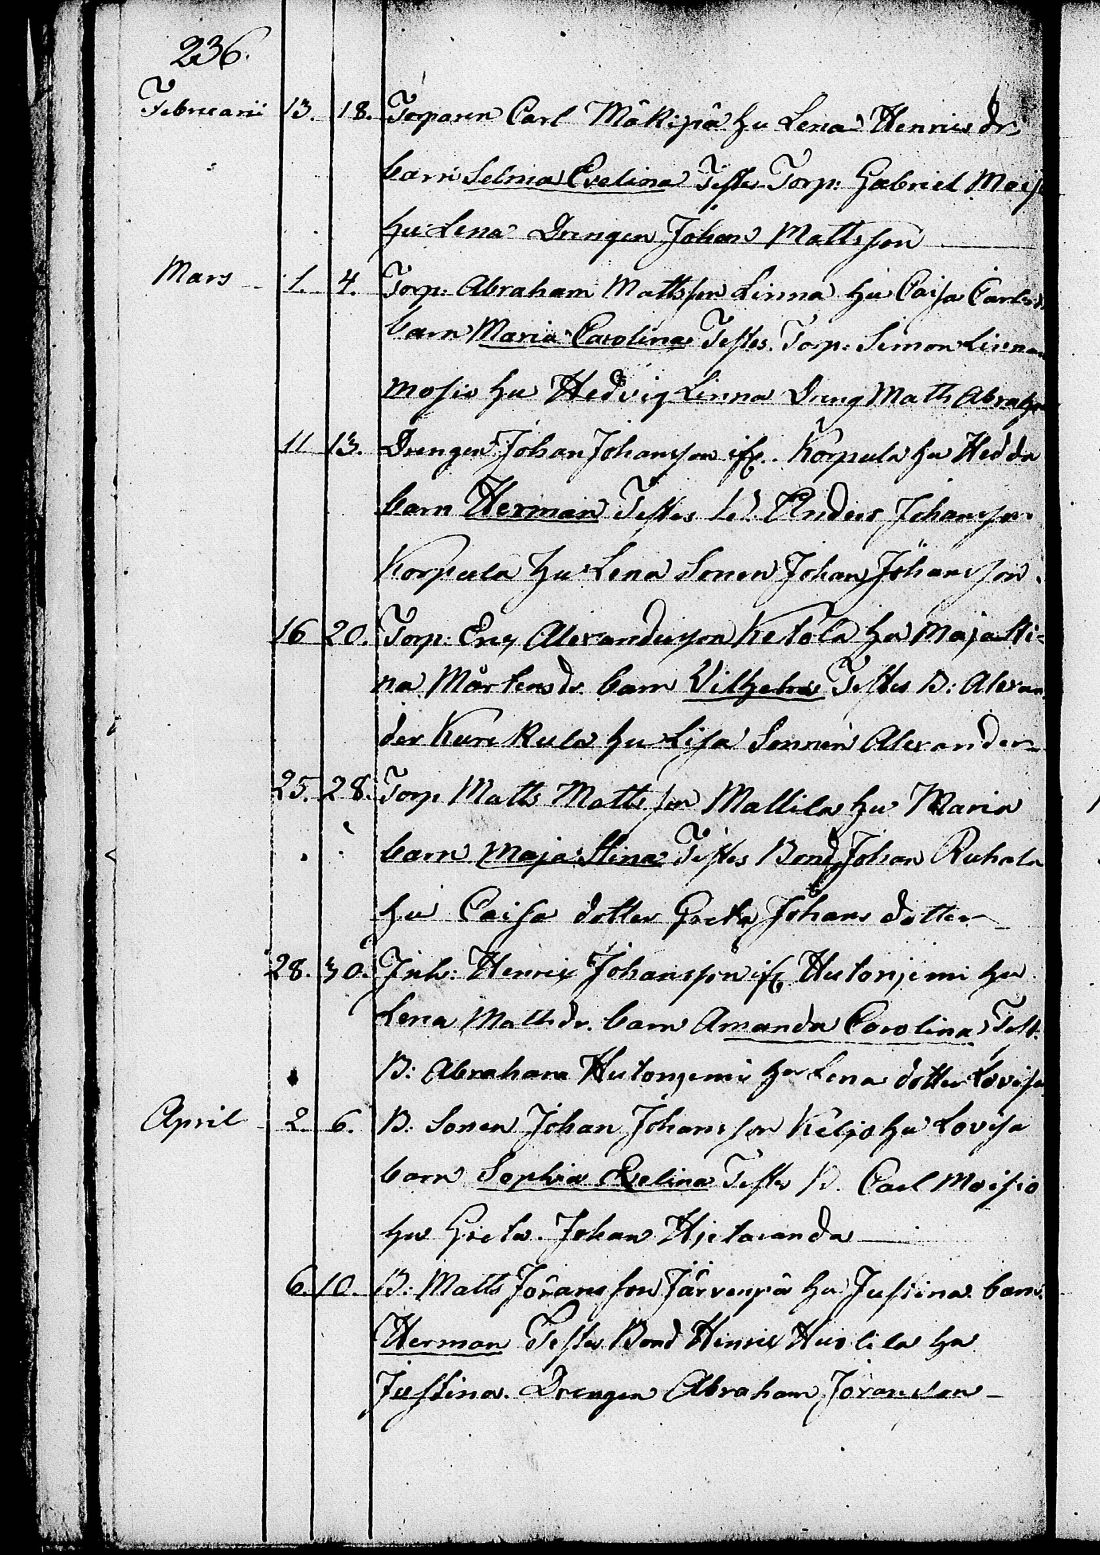 236.
Februarii 13. 18. Torparen Carl Mäkipä hu Lena Henrics dr
barn Selma Evelina Testes Torp: Gabriel Mois
hu Lena Drengen Johan Mattsson
Mars 1. 4. Torp: Abraham Mattsson Linna hu Caisa Carls
barn Maria Carolina Testes. Torp: Simon Linnan
mosio hu Hedvig Linna Dreng Matts Abrah
11 13. Drengen Johan Johansson ifr. Korpula hu Hedda
barn Herman Testes Anders Johansson
Korpula hu Lena Sonen Johan Johansson.
16 20. Torp: Eric Alexandersson Ketola hu Maja Sti-
na Mårtensdr. barn Vilhelm Testes B: Alexan
der Kurkula hu Lisa Sonnen Alexander
25. 28. Torp. Matts Mattsson Mattila hu Maria
barn Maja Stina Testes Bond Johan Ruhala
hu Caisa dotter Greta Johans dotter
28. 30. Inh: Henric Johansson ifr Hutoniemi hu
Lena Mattsdr. barn Amanda Carolina Test.
B: Abraham Hutoniemi hu Lena dotter Lovisa
April 2. 6. B. Sonen Johan Johansson Keljo hu Lovisa
barn Sophia Evelina Testes B. Carl Moisio
hu Greta. Johan Hietaranda
6. 10. B: Matts Jöransson Järvenpä hu Justina barn
Herman Testes Bond Henric hu
Justina. Drengen Abraham Jöransson